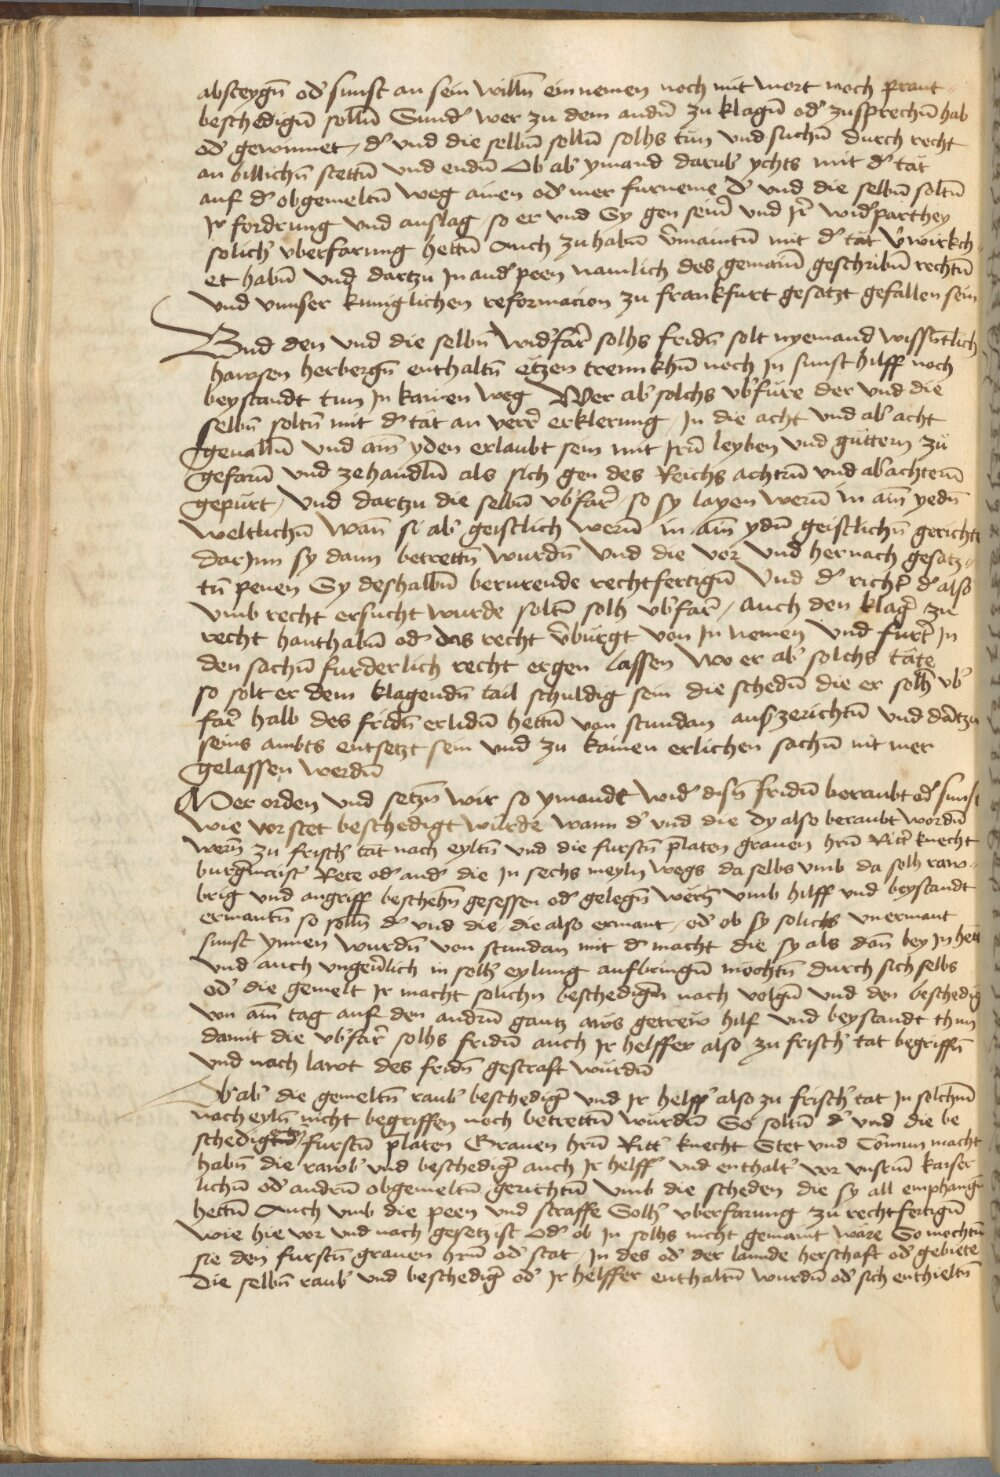 absteygn̄ od' sunst an sein willn̄ ein nemen noch mit mort noch prant
beschedign̄ solln̄ Sund' wer zu dem andn̄ zu klagn̄ od' zusprechn̄ hab
od' gewinnet / d' und die selbn̄ solln̄ solhs tun und suchn̄ durch recht
an billichn̄ stettn̄ und endn̄ Ob ab' ymand darub' ychts mit d' tat
auf d' obgemeltn̄ weg ainen od' mer furneme d' und die selbn̄ soltn̄
Ir fordrung und anslag so er und Sy gen sein' und Ir' wid'parthey
solich' vberfarung hettn̄ Auch zu habn̄ v'maintn̄ mit d' tat v'wirckh
et habn̄ und dartzu In and' peen namlich des gemain̄ geschribn̄ rechtn̄
und vnnser kuniglichen reformacion zu frankfurt gesatzt gefallen sein
Und den und die selbn̄ wid'far' solhs fridn̄ solt nyemand wissn̄tlich
hawsen herbergn̄ enthaltn̄ etzen trennkhn̄ noch In sunst hilff noch
beystandt tun In kainen weg Wer ab' solchs vb'fure der und die
selbn̄ soltn̄ mit d' tat an verr' erklerung / In die acht und ab' acht
geualln̄ und aim̄ yden erlaubt sein mit Irn̄ leyben und guttern zu
gefarn̄ und zehandln̄ als sich gen des Reichs achtrn̄ und ab'achtern̄
gepurt / und dartzu die selbn̄ vb'far' so sy layen wern̄ in aim̄ yedn̄
weltlichn̄ wan̄ si ab' geistlich wern̄ in aim̄ ydn̄ geistlichn̄ gerichte
dar Inn sy dann betrettn̄ wurdn̄ und die vor und hernach gesatz
tn̄ penen Sy deshalbn̄ berurende rechtfertign̄ Und d' richt' d' also
vmb recht ersucht wurde soltn̄ solh vb'far' / auch den klag' zu
recht hanthabn̄ od' das recht v'burgt von In nemen und furt' In
den sachn̄ furderlich recht ergen lassen Wo er ab' solchs tate
so solt er dem klagendn̄ tail schuldig sein die schedn̄ die er solh' vb'
far' halb des fridn̄ erlidn̄ hettn̄ von stundan auszerichtn̄ und dartzu
seins ambts entsetzt sein und zu kainen erlichen sachn̄ nit mer
gelassen werdn̄
Mer orden und setzn̄ wir so ymandt wid' disn̄ fridn̄ beraubt od' sunst
wie vor stet beschedigt wurde wann d' und die dy also beraubt wordn̄
wern̄ zu frisch' tat nach eyltn̄ und die furstn̄ p'laten grauen hrn̄ Ritt' knecht
burg'maist' Rete od' and' die In sechs meyln̄ wegs da selbs vmb da solh raw
brig und angriff beschehn̄ gesessen od' gelegn̄ wern̄ vmb hilff und beystandt
ermantn̄ so solln̄ d' und die / die also ermant / od' ob sy solichs vnermant
sunst ynnen wurdn̄ von stundan mit d' macht die sy als dan̄ bey In hett
und auch vngeu'lich in solh' eylung aufbringn̄ mochtn̄ durch sich selbs
od' die gemelt Ir macht solichn̄ beschedign̄ nach volgn̄ und den beschedig
von aim̄ tag auf den andrn̄ gantz aws getrew hilf und beystandt thun
damit die vb'far' solhs fridn̄ auch Ir helffer also zu frisch' tat begriffn̄
und nach lawt des fridn̄ gestraft wurdn̄
Ob ab' die gemeltn̄ raub' beschedig' und Ir helff' also zu frisch' tat In solchm̄
nacheyln̄ nicht begriffen noch betrettn̄ wurdn̄ So soltn̄ d' und die be
schedigtn̄ furstn̄ p'laten Grauen hrn̄ Ritt' knecht Stet und Comun macht
habn̄ die rawb' und beschedig' auch Ir helff' und enthalt' vor vnsrm̄ kaiser
lichn̄ od' andrn̄ obgemeltn̄ gerichtn̄ vmb die scheden die sy all emphangn̄
hettn̄ Auch vmb die peen und straffe Solh' vberfarung zu rechtfertign̄
wie hie vor und nach gesetz ist Od' ob In solhs nicht gemaint ware So mochtn̄
sie den furstn̄ grauen hrn̄ od' stat In des od' der lannde herschaft od' gebiete
die selbn̄ raub' und beschedig' od' Ir helffer enthaltn̄ wurdn̄ od' sich enthieltn̄